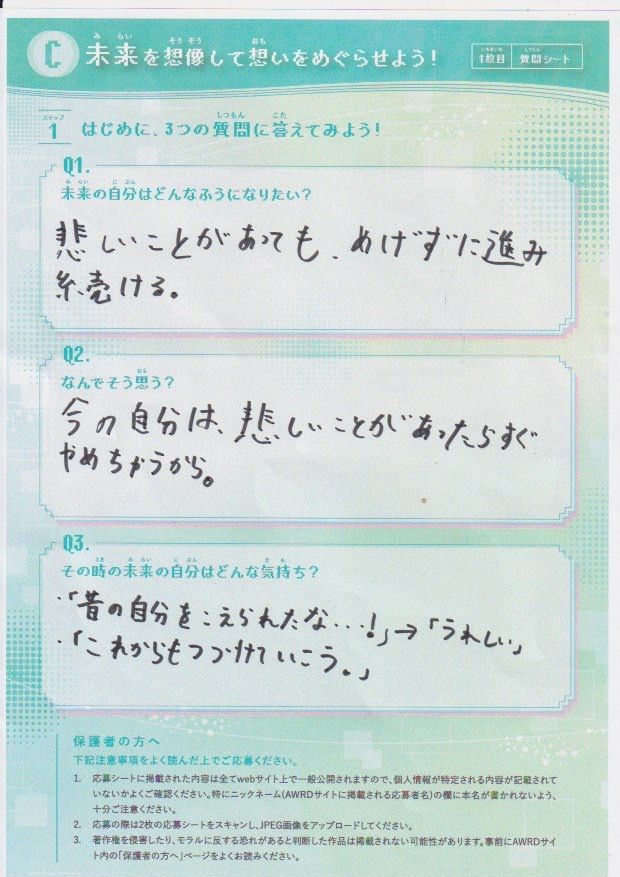 C 未来を想像して想いをめぐらせよう!
1枚目 質問シート
ステップ
1 はじめに、3つの質問に答えてみよう!
Q1.
未来の自分はどんなふうになりたい?
悲しいことがあっても、めげずに進み
続ける。
Q2.
なんでそう思う?
今の自分は、悲しいことがあったらすぐ
やめちゃうから。
Q3.
その時の未来の自分はどんな気持ち?
・「昔の自分をこえられたな...!」→「うれしい」
・「これからもつづけていこう。」
保護者の方へ
下記注意事項をよく読んだ上でご応募ください。
1. 応募シートに掲載された内容は全てwebサイト上で一般公開されますので、個人情報が特定される内容が記載されて
いないかよくご確認ください。特にニックネーム(AWRDサイトに掲載される応募者名)の欄に本名が書かれないよう、
十分ご注意ください。
2. 応募の際は2枚の応募シートをスキャンし、JPEG画像をアップロードしてください。
3. 著作権を侵害したり、モラルに反する恐れがあると判断した作品は掲載されない可能性があります。事前にAWRDサイ
ト内の「保護者の方へ」ページをよくお読みください。